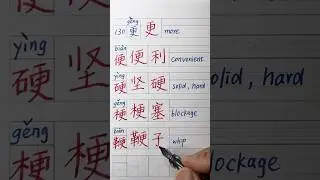 gēng
130 更 更 more
biàn
便 便利 convenient
yìng
硬 坚硬 solid, hard
gěng
梗 梗塞 blockage
biān
鞭 鞭子 whip
yìng
硬 坚 solid, hard
gěng
梗 ockage